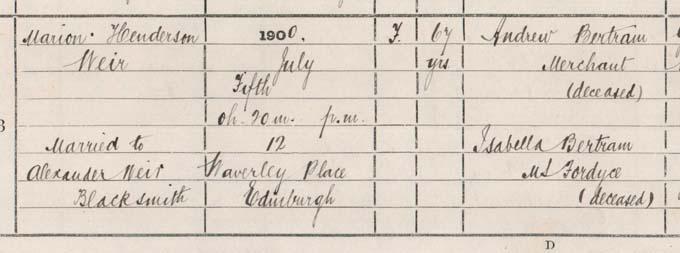 Marion Henderson
Weir
Married to
Alexander Weir
Blacksmith
1900.
July
Fifth
0h. 20m. p.m.
12
Waverley Place
Edinburgh
F.
67
yrs
Andrew Bertram
Merchant
(deceased)
Isabella Bertram
M.S. Fordyce
(deceased)
D